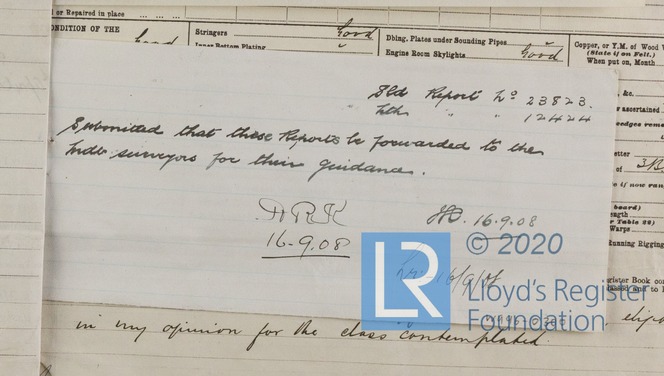 d or Repaired in place
ONDITION OF THE
Good
Stringers
Good
Inner Bottom Plating
Dbing. Plates under Sounding Pipes
Engine Room Skylights
Good
Copper, or Y.M. of Wood V
(State if on Felt.)
When put on, Month
Sld Report No 23823.
Lth " " 12424
Submitted that these Reports be forwarded to the
Indo surveyors for their guidance.
16.9.08
16.9.08
16/9/08
&c.
ascertained
etter
of 3/B
if now ran
board)
ength
r Table 22)
Warps
Running Rigging
gister Book
and to
LR
© 2020
Lloyd's Register
Foundation
in my opinion for the class contemplated.